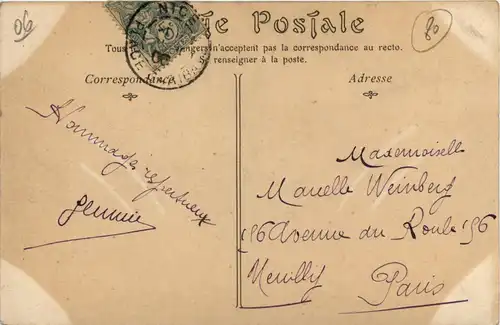 06
NICE
80
Carte Postale
Tous étrangers n'acceptent pas la correspondance au recto.
renseigner à la poste.
Correspondance
Adresse
Hommage respectueux
Mademoiselle
Marcelle Weinberg
156 Avenue du Roule 156
Neuilly
Paris